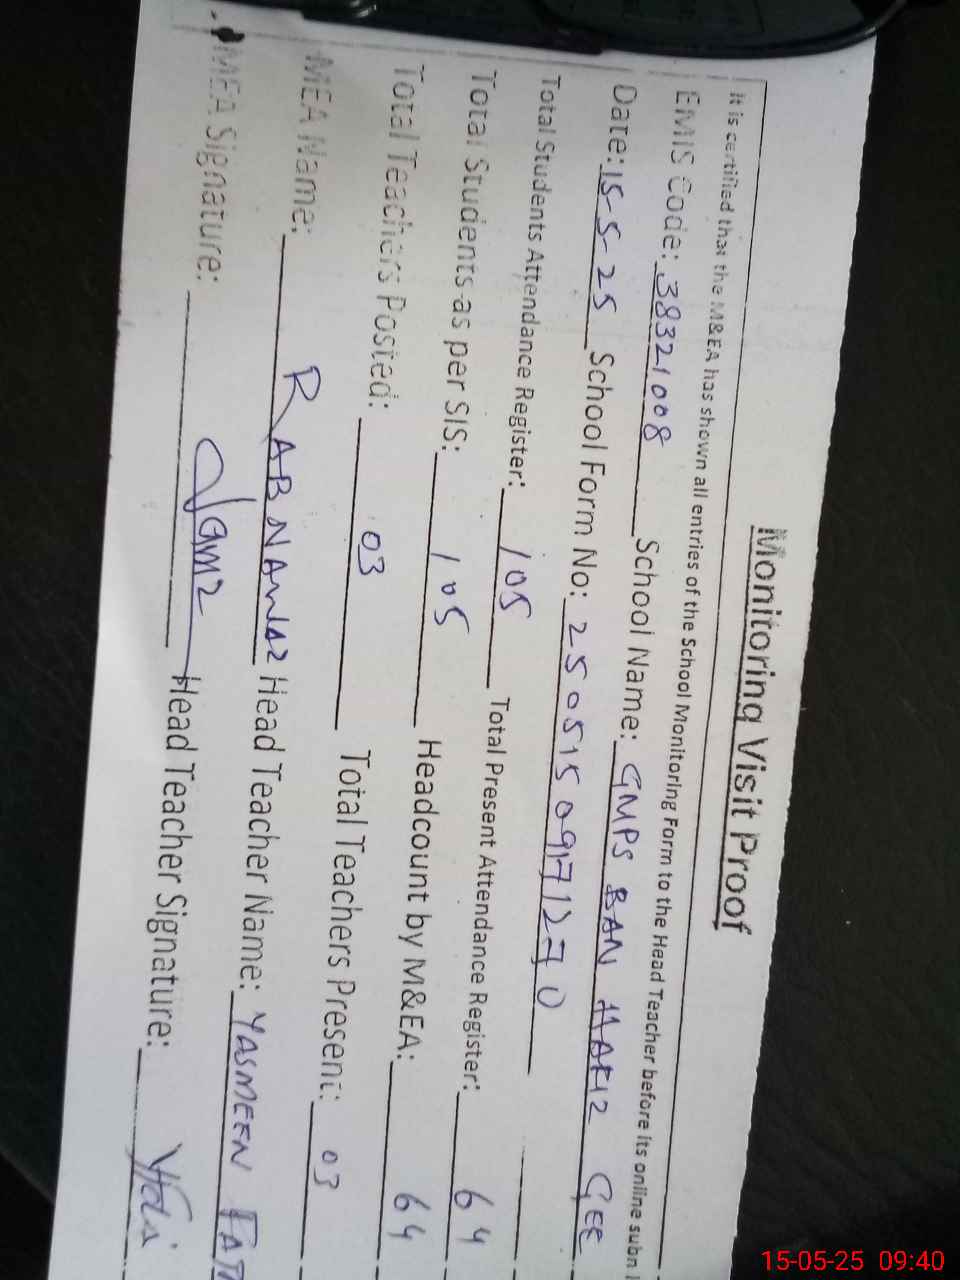 Monitoring Visit Proof
It is certified that the M&EA has shown all entries of the School Monitoring Form to the Head Teacher before its online subn
EMIS Code: 38321008 School Name: GMPS BAN HAFIZ GEE
Date: 15-5-25 School Form No: 25051509171270
Total Students Attendance Register: 105 Total Present Attendance Register: 64
Total Students as per SIS: 105 Headcount by M&EA: 64
Total Teachers Posted: 03 Total Teachers Present: 03
MEA Name: RAB NAWAZ Head Teacher Name: YASMEEN FAT
MEA Signature: Head Teacher Signature:
15-05-25 09:40